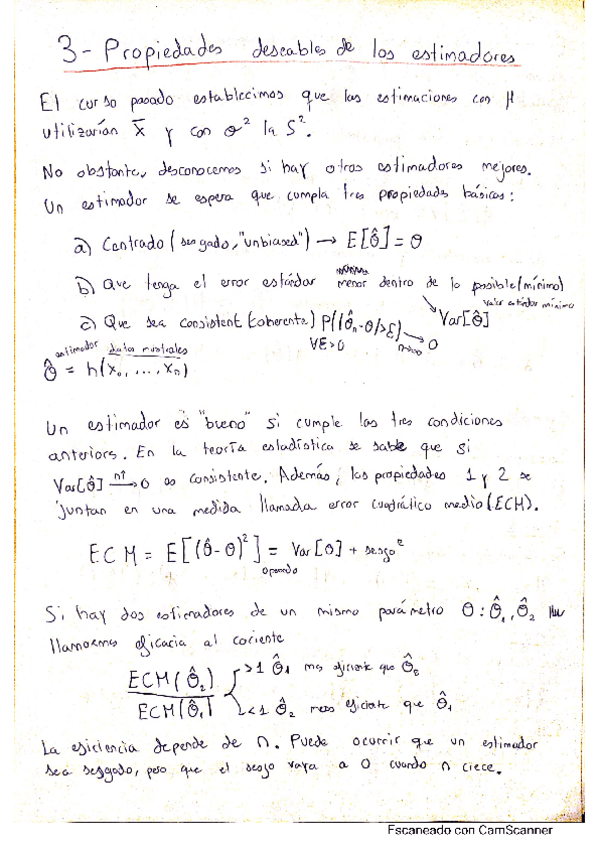 3- Propiedades deseables de los estimadores
El curso pasado establecimos que las estimaciones con μ
utilizarían X̄ y con σ² la S².
No obstante, desconocemos si hay otros estimadores mejores.
Un estimador se espera que cumpla tres propiedades básicas:
a) Centrado (sesgado, "unbiased") → E[θ̂] = θ
b) Que tenga el error estándar menor dentro de lo posible (mínimo)
valor estándar mínimo
Var[θ̂]
c) Que sea consistent (coherente) P(|θ̂n-θ|>ε) → 0
∀ε>0 n→∞
estimador datos muestrales
θ̂ = h(x₀, ..., xn)
Un estimador es "bueno" si cumple las tres condiciones
anteriors. En la teoría estadística se sabe que si
Var[θ̂] → 0 es consistente. Además, las propiedades 1 y 2 se
juntan en una medida llamada error cuadrático medio (ECM).
ECM = E[(θ̂-θ)²] = Var[θ] + sesgo²
operando
Si hay dos estimadores de un mismo parámetro θ: θ̂₁, θ̂₂
llamaremos eficacia al cociente
ECM(θ̂₂) >1 θ̂₁ mas eficiente que θ̂₂
ECM(θ̂₁) <1 θ̂₂ mas eficiente que θ̂₁
La eficiencia depende de n. Puede ocurrir que un estimador
sea sesgado, pero que el sesgo vaya a 0 cuando n crece.
Escaneado con CamScanner